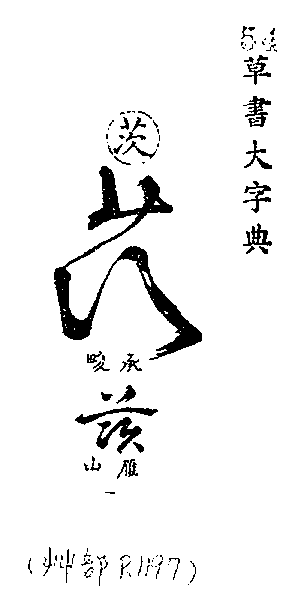 54
草書大字典
茨
茨
承畯
茨
雁山
一
(艸部 P.1197)